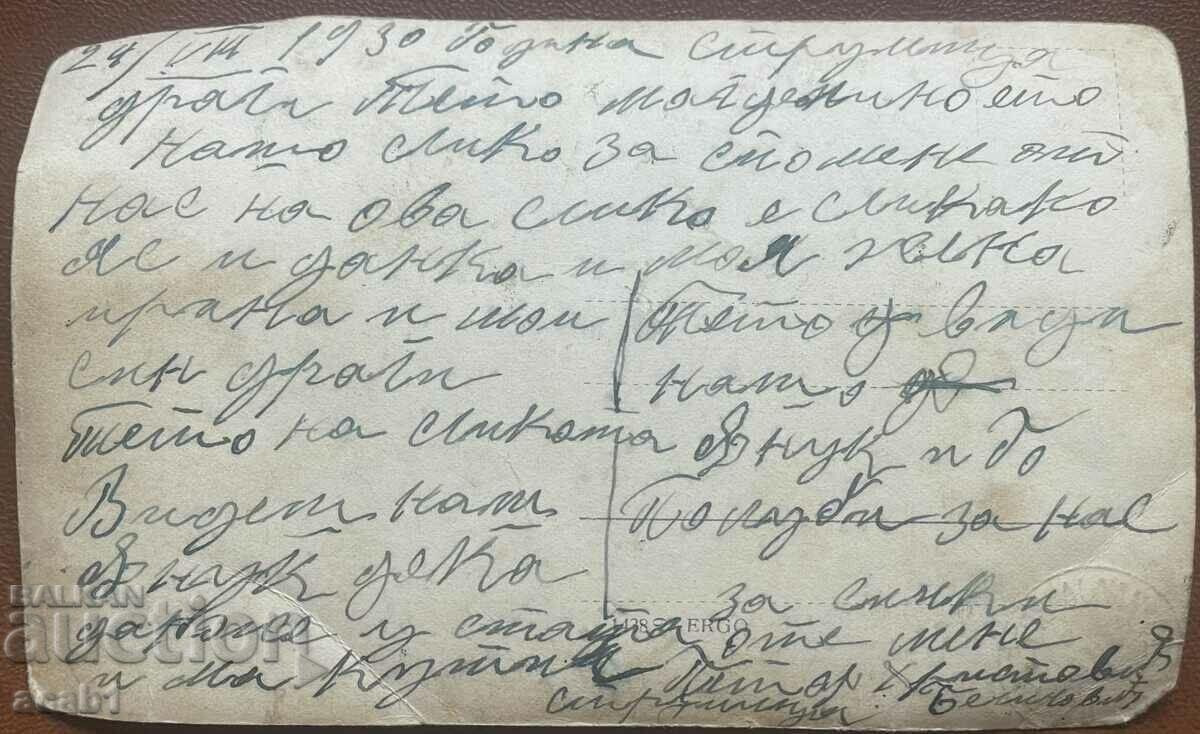 24/VIII 1930 Година Струмица
драги Тето мајде ни ното
нашо слико за спомен от
нас на ова слико е Сликако
Яс и данка и моя жена
ирана и мои
син драги
Тето на сликата
Видеш наш
Внук дека
у
и ма кутии
Тето ви ди
нашо
Внук и го
Полуби за нас
за сички
оте мене
Петар Христовић
Струмица
1438 S ERGO
BALKAN
auction
acab1